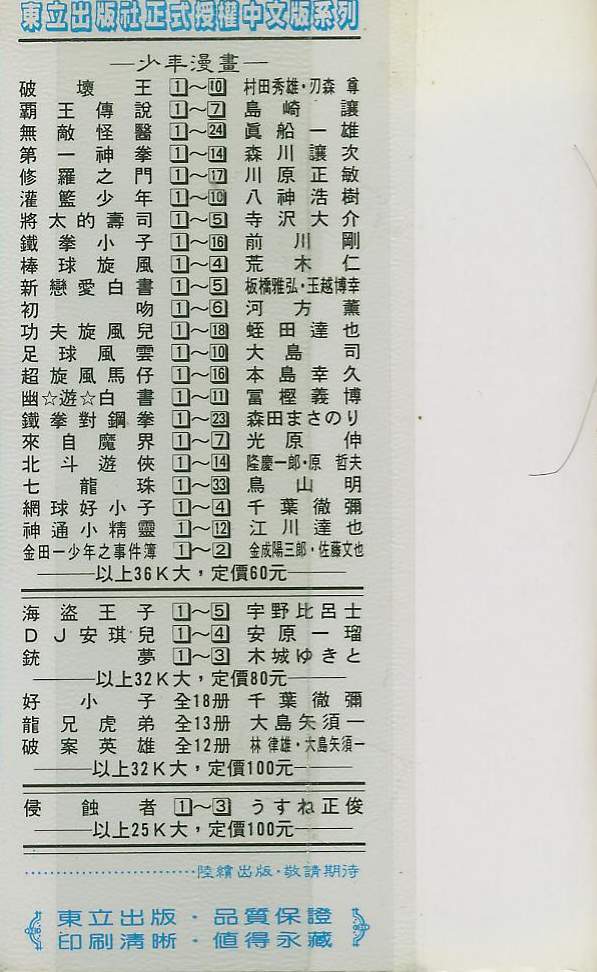 東立出版社正式授權中文版系列
—少年漫畫—
破壞王 1～10 村田秀雄·刃森 尊
霸王傳說 1～7 島崎讓
無敵怪醫 1～24 眞船一雄
第一神拳 1～14 森川讓次
修羅之門 1～17 川原正敏
灌籃少年 1～10 八神浩樹
將太的壽司 1～5 寺沢大介
鐵拳小子 1～16 前川剛
棒球旋風 1～4 荒木仁
新戀愛白書 1～5 板橋雅弘·玉越博幸
初吻 1～6 河方薰
功夫旋風兒 1～18 蛭田達也
足球風雲 1～10 大島司
超旋風馬仔 1～16 本島幸久
幽☆遊☆白書 1～11 冨樫義博
鐵拳對鋼拳 1～23 森田まさのり
來自魔界 1～7 光原伸
北斗遊俠 1～14 隆慶一郎·原 哲夫
七龍珠 1～33 鳥山明
網球好小子 1～4 千葉徹彌
神通小精靈 1～12 江川達也
金田一少年之事件簿 1～2 金成陽三郎·佐藤文也
——以上36K大，定價60元——
海盜王子 1～5 宇野比呂士
DJ安琪兒 1～4 安原一瑠
銃夢 1～3 木城ゆきと
——以上32K大，定價80元——
好小子 全18册 千葉徹彌
龍兄虎弟 全13册 大島矢須一
破案英雄 全12册 林 律雄·大島矢須一
——以上32K大，定價100元——
侵蝕者 1～3 うすね正俊
——以上25K大，定價100元——
··························陸續出版·敬請期待
東立出版·品質保證
印刷清晰·值得永藏